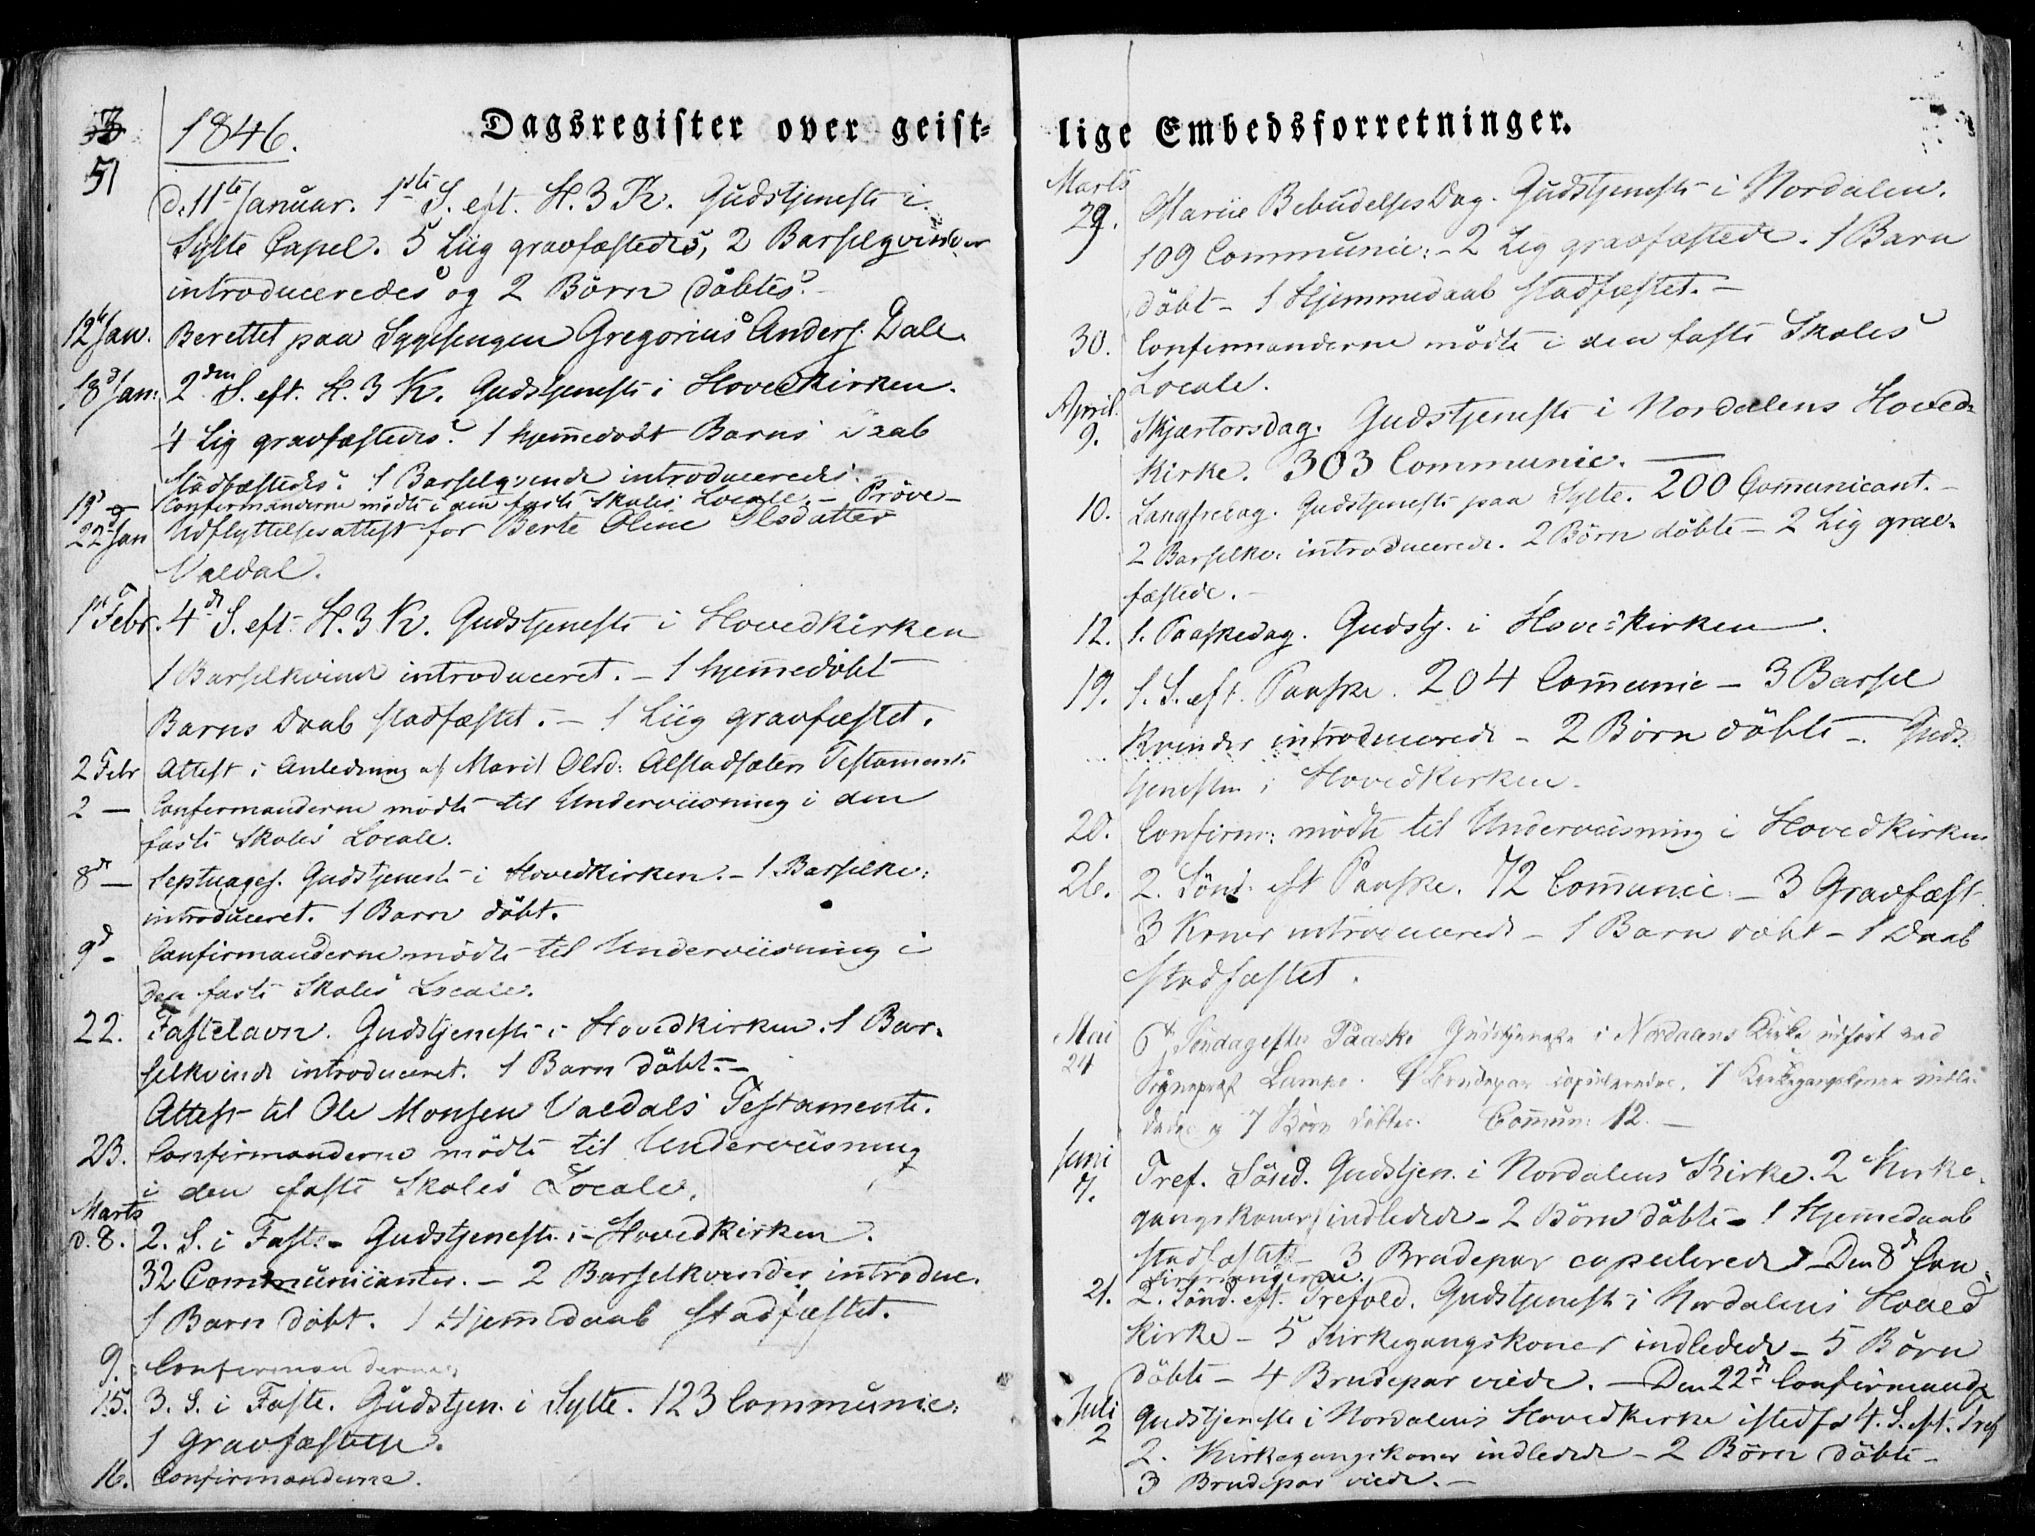 51
1846.
Dagsregister over geist-
d. 11te Januar. 1ste S. eft. H. 3 K. Gudstjeneste i
Sylte Capel. 5 Liig gravfæstedes, 2 Barselqvinder
introduceredes og 2 Börn döbtes.
12te Jan. Berettet paa Sygesengen Gregorius Anders. Dale
18d Jan: 2den S. eft. H. 3 K. Gudstjeneste i Hovedkirken.
4 Lig gravfæstedes. 1 hjem̄edöbt Barns Daab
stadfæstedes. 1 Barselqvinde introduceredes.
19d Confirmanderne mödte i den faste Skoles Locale. – Pröve –
22d Jan Udflyttelsesattest for Berte Oline Olsdatter
Valdal.
1st Febr. 4de S. eft. H. 3 K. Gudstjeneste i Hovedkirken
1 Barselkvinde introduceret. – 1 hjem̄edöbt
Barns Daab stadfæstet. – 1 Liig gravfæstet.
2 Febr Attest i Anledning af Marit Olsd: Alstadsæters Testamente
2 – Confirmanderne mödte til Underviisning i den
faste Skoles Locale.
8de – Septuages. Gudstjeneste i Hovedkirken. – 1 Barselkv:
introduceret. 1 Barn döbt.
9d – Confirmanderne mödte til Underviisning i
den faste Skoles Locale.
22. Fastelavn. Gudstjeneste i Hovedkirken. 1 Bar-
selkvinde introduceret. 1 Barn döbt. –
Attest til Ole Monsen Valdals Testamente.
23. Confirmanderne mödte til Underviisning
i den faste Skoles Locale.
Marts
D. 8. 2. S. i Faste – Gudstjeneste i Hovedkirken.
32 Communicanter. – 2 Barselkvinder introduc.
1 Barn döbt. 1 Hjem̄edaab stadfæstet.
9. Confirmanderne
15. 3. S. i Faste. Gudstjen. i Sylte. 123 Communic:
1 Gravfæstelse.
16. Confirmanderne.
lige Embedsforretninger.
Marts
29. Mariæ Bebudelses Dag. Gudstjeneste i Nordalen.
109 Communic: – 2 Lig gravfæstede. 1 Barn
döbt – 1 Hjemmedaab stadfæstet. –
30. Confirmanderne mödte i den faste Skoles
Locale.
April
9. Skjærtorsdag. Gudstjeneste i Nordalens Hoved-
kirke. 303 Communic. –
10. Langfredag. Gudstjeneste paa Sylte. 200 Com̄unicant. –
2 Barselkv: introducerede. 2 Börn döbte – 2 Lig grav-
fæstede. –
12. 1. Paaskedag. Gudstj. i Hovedkirken.
19. 1. S. eft. Paaske. 204 Com̄unic – 3 Barsel
kvinder introducerede – 2 Börn döbte – Guds
tjenesten i Hovedkirken.
20. Confirm: mödte til Underviisning i Hovedkirken
26. 2. Sönd. eft Paaske. 72 Com̄unic – 3 Gravfæst.
3 Koner introducerede – 1 Barn döbt – 1 Daab
stadfæstet.
Mai
24 6te Söndag efter Paaske Gudstjeneste i Nordalens Kirke udfört ved
Sognepræst Lampe. Brudepar copulerede. 7 Kirkegangskoner indle-
dedes og 7 Börn döbtes. Com̄un: 12. –
Juni
7. Tref. Sönd. Gudstjen. i Nordalens Kirke. 2 Kirke-
gangskoner indledede – 2 Börn döbte – 1 Hjem̄edaab
stadfæstet – 3 Brudepar copulerede – Den 8de Con-
firmanderne.
21. 2. Sönd. eft. Trefold. Gudstjeneste i Nordalens Hoved
kirke – 5 Kirkegangskoner indledede – 5 Börn
döbte – 4 Brudepar viede. – Den 22de Confirmand
Juli
2 Gudstjeneste i Nordalens Hovedkirke istedf. 4. S. eft. Tref
2. Kirkegangskoner indledede – 2 Börn döbte –
3 Brudepar viede. –